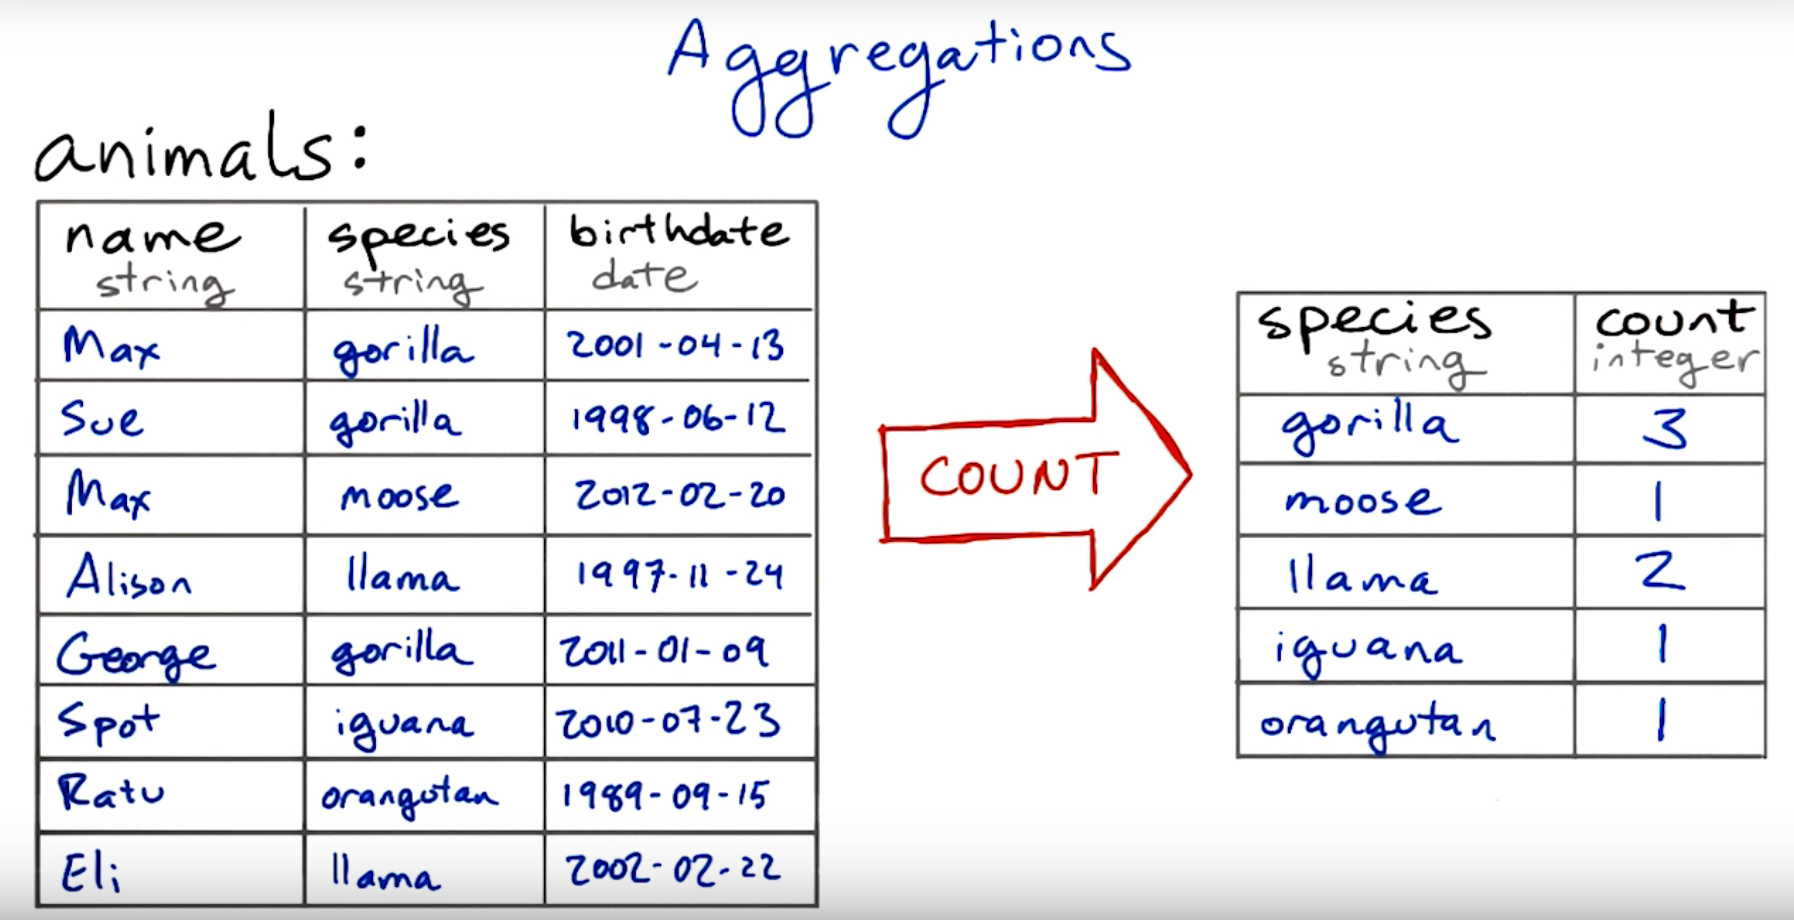 Aggregations
animals:
name species birthdate
string string date
Max gorilla 2001-04-13
Sue gorilla 1998-06-12
Max moose 2012-02-20
Alison llama 1997-11-24
George gorilla 2011-01-09
Spot iguana 2010-07-23
Ratu orangutan 1989-09-15
Eli llama 2002-02-22
COUNT
species count
string integer
gorilla 3
moose 1
llama 2
iguana 1
orangutan 1